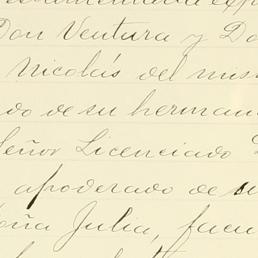 Don Ventura y Do
Nicolás del mis
do de su herman
Señor Licenciado
apoderado de su
oña Julia, facu